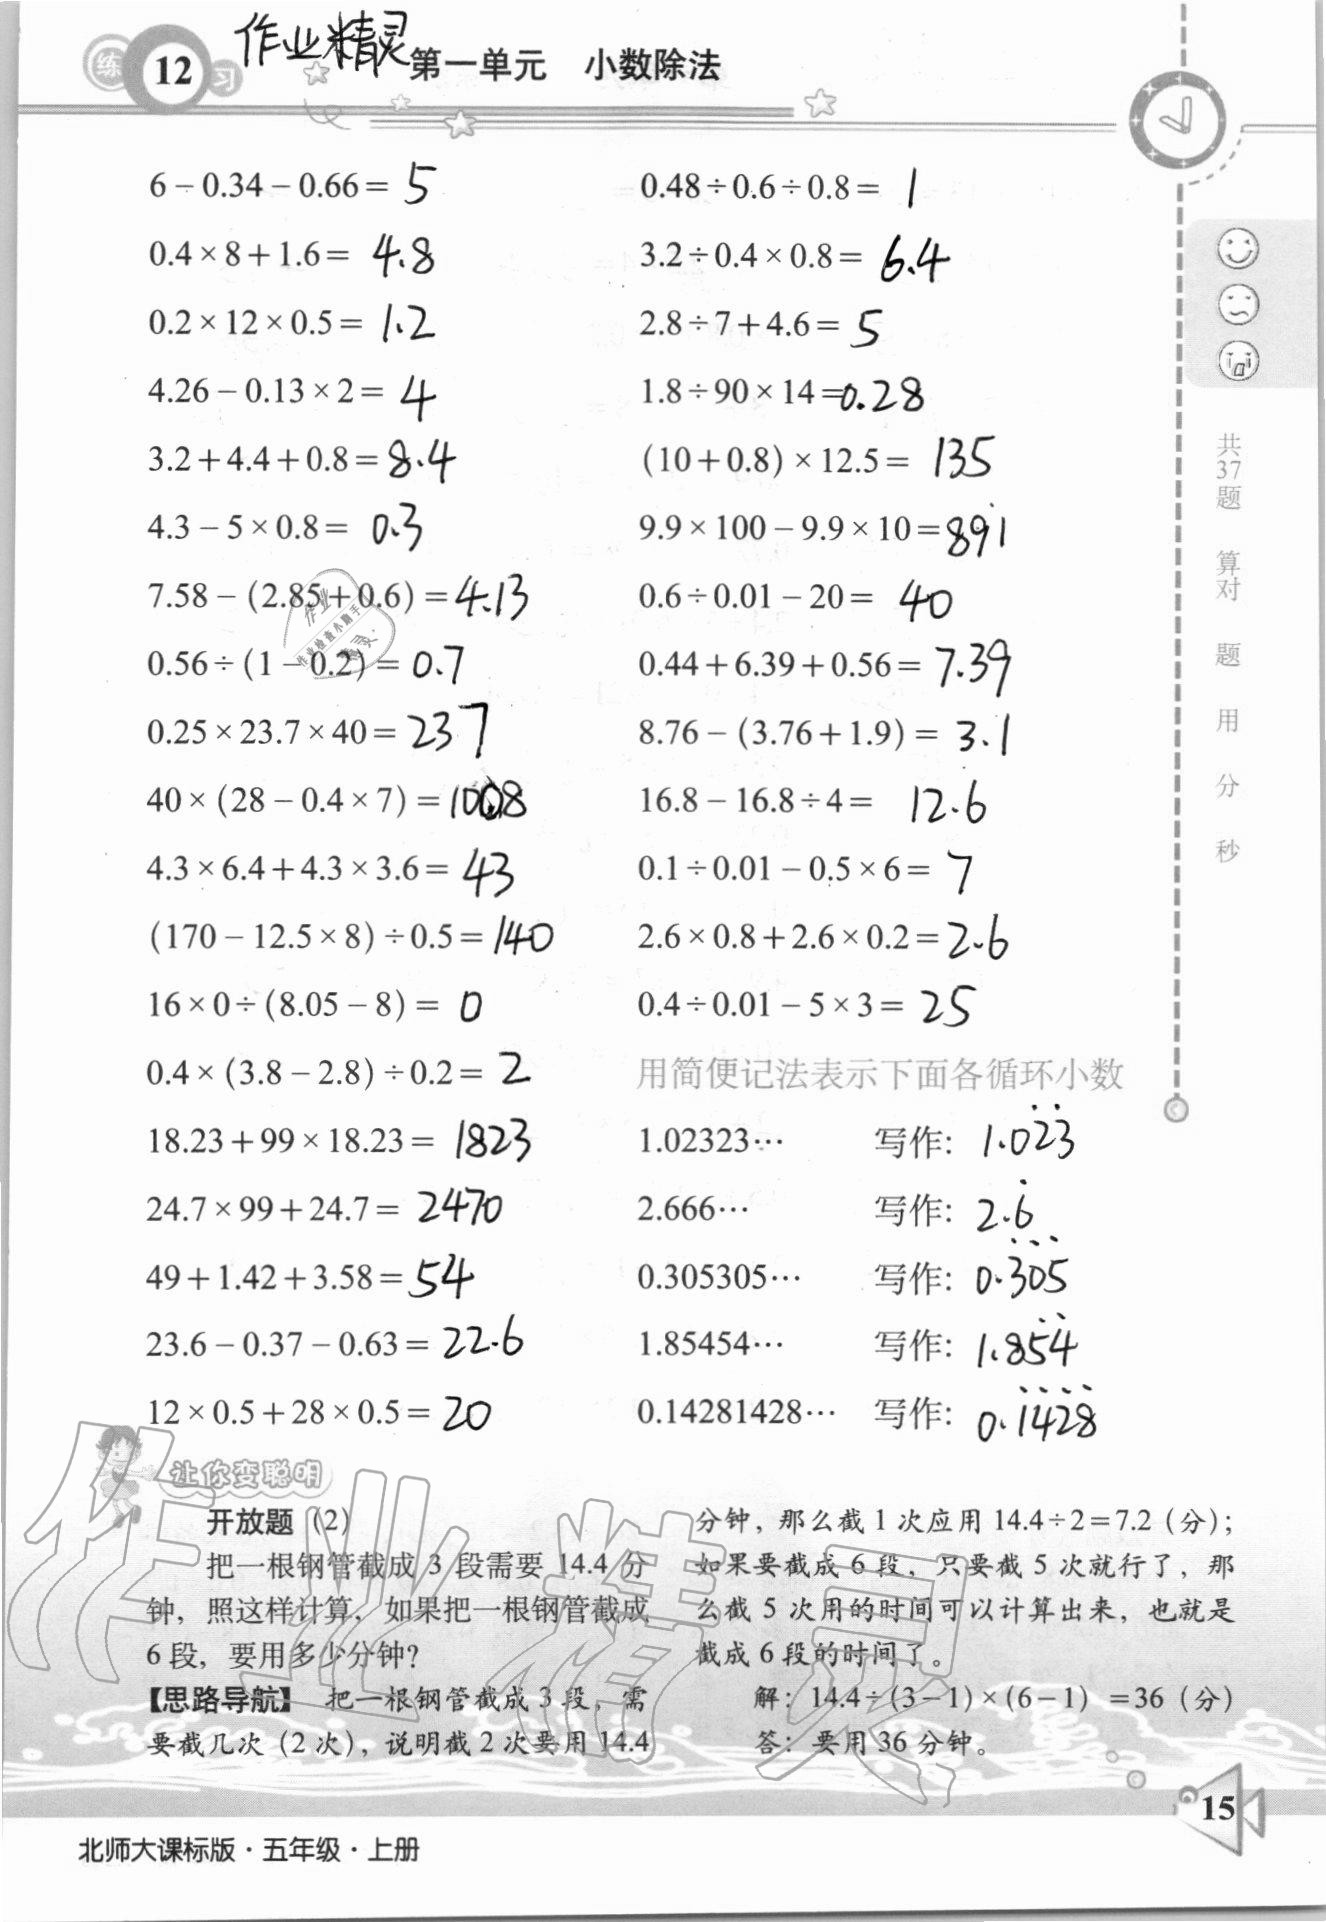 练 12 习 作业精灵 第一单元 小数除法
6－0.34－0.66＝ 5
0.4×8＋1.6＝ 4.8
0.2×12×0.5＝ 1.2
4.26－0.13×2＝ 4
3.2＋4.4＋0.8＝8.4
4.3－5×0.8＝ 0.3
7.58－(2.85＋0.6)＝4.13
0.56÷(1－0.2)＝0.7
0.25×23.7×40＝237
40×(28－0.4×7)＝1008
4.3×6.4＋4.3×3.6＝43
(170－12.5×8)÷0.5＝140
16×0÷(8.05－8)＝ 0
0.4×(3.8－2.8)÷0.2＝2
18.23＋99×18.23＝ 1823
24.7×99＋24.7＝ 2470
49＋1.42＋3.58＝54
23.6－0.37－0.63＝22.6
12×0.5＋28×0.5＝20
0.48÷0.6÷0.8＝ 1
3.2÷0.4×0.8＝ 6.4
2.8÷7＋4.6＝5
1.8÷90×14＝0.28
(10＋0.8)×12.5＝ 135
9.9×100－9.9×10＝891
0.6÷0.01－20＝ 40
0.44＋6.39＋0.56＝7.39
8.76－(3.76＋1.9)＝3.1
16.8－16.8÷4＝ 12.6
0.1÷0.01－0.5×6＝7
2.6×0.8＋2.6×0.2＝2.6
0.4÷0.01－5×3＝25
用简便记法表示下面各循环小数
1.02323… 写作：1.02̇3̇
2.666… 写作：2.6̇
0.305305… 写作：0.3̇0̇5̇
1.85454… 写作：1.85̇4̇
0.14281428… 写作：0.1̇4̇2̇8̇
共37题 算对 题 用 分 秒
让你变聪明
开放题（2）
把一根钢管截成 3 段需要 14.4 分
钟，照这样计算，如果把一根钢管截成
6 段，要用多少分钟？
【思路导航】 把一根钢管截成 3 段，需
要截几次（2 次），说明截 2 次要用 14.4
分钟，那么截 1 次应用 14.4÷2＝7.2（分）；
如果要截成 6 段，只要截 5 次就行了，那
么截 5 次用的时间可以计算出来，也就是
截成 6 段的时间了。
解：14.4÷(3－1)×(6－1)＝36（分）
答：要用 36 分钟。
作业精灵
15
北师大课标版·五年级·上册